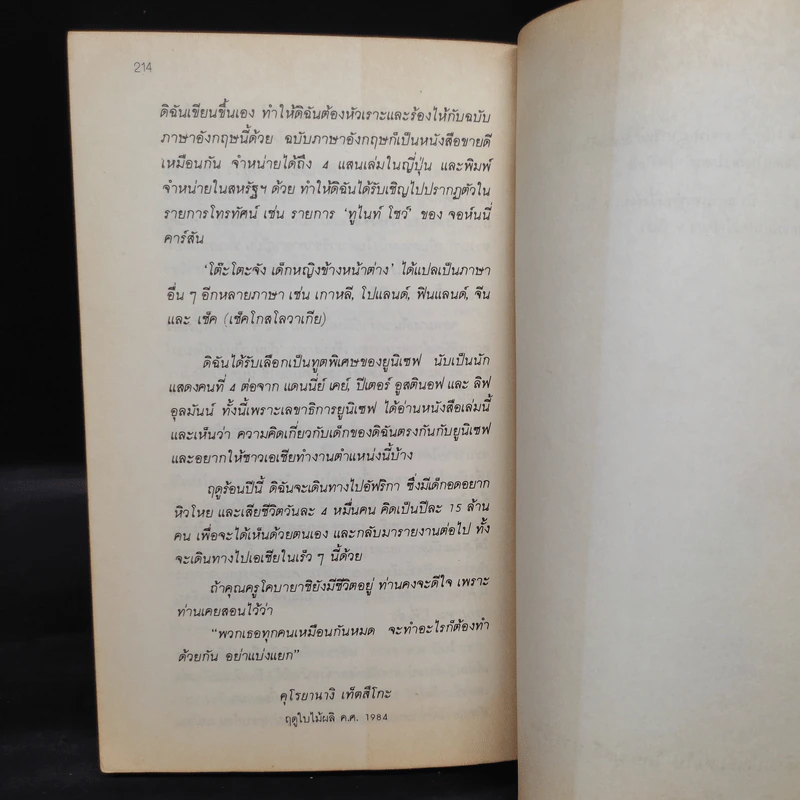 214
ดิฉันเขียนขึ้นเอง ทำให้ดิฉันต้องหัวเราะและร้องไห้กับฉบับ
ภาษาอังกฤษนี้ด้วย ฉบับภาษาอังกฤษก็เป็นหนังสือขายดี
เหมือนกัน จำหน่ายได้ถึง 4 แสนเล่มในญี่ปุ่น และพิมพ์
จำหน่ายในสหรัฐฯ ด้วย ทำให้ดิฉันได้รับเชิญไปปรากฏตัวใน
รายการโทรทัศน์ เช่น รายการ ‘ทูไนท์ โชว์’ ของ จอห์นนี่
คาร์สัน
‘โต๊ะโตะจัง เด็กหญิงข้างหน้าต่าง’ ได้แปลเป็นภาษา
อื่น ๆ อีกหลายภาษา เช่น เกาหลี, โปแลนด์, ฟินแลนด์, จีน
และ เช็ค (เช็คโกสโลวาเกีย)
ดิฉันได้รับเลือกเป็นทูตพิเศษของยูนิเซฟ นับเป็นนัก
แสดงคนที่ 4 ต่อจาก แดนนี่ย์ เคย์, ปีเตอร์ อูสตินอฟ และ ลิฟ
อุลมันน์ ทั้งนี้เพราะเลขาธิการยูนิเซฟ ได้อ่านหนังสือเล่มนี้
และเห็นว่า ความคิดเกี่ยวกับเด็กของดิฉันตรงกันกับยูนิเซฟ
และอยากให้ชาวเอเชียทำงานตำแหน่งนี้บ้าง
ฤดูร้อนปีนี้ ดิฉันจะเดินทางไปอัฟริกา ซึ่งมีเด็กอดอยาก
หิวโหย และเสียชีวิตวันละ 4 หมื่นคน คิดเป็นปีละ 15 ล้าน
คน เพื่อจะได้เห็นด้วยตนเอง และกลับมารายงานต่อไป ทั้ง
จะเดินทางไปเอเชียในเร็ว ๆ นี้ด้วย
ถ้าคุณครูโคบายาชิยังมีชีวิตอยู่ ท่านคงจะดีใจ เพราะ
ท่านเคยสอนไว้ว่า
“พวกเธอทุกคนเหมือนกันหมด จะทำอะไรก็ต้องทำ
ด้วยกัน อย่าแบ่งแยก”
คุโรยานางิ เท็ตสึโกะ
ฤดูใบไม้ผลิ ค.ศ. 1984